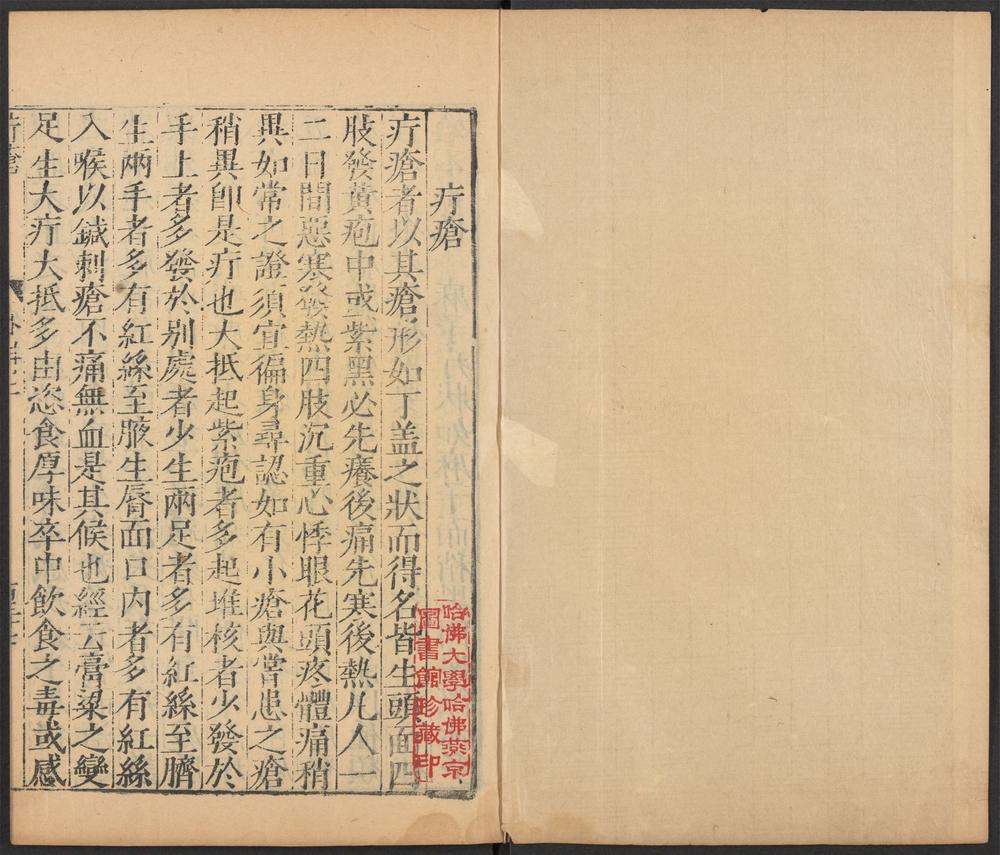 疔瘡
疔瘡者以其瘡形如丁盖之狀而得名皆生頭面四
肢發黃疱中或紫黑必先癢後痛先寒後熱凡人一
二日間惡寒發熱四肢沉重心悸眼花頭疼體痛稍
異如常之證須宜徧身尋認如有小瘡與常患之瘡
稍異卽是疔也大抵起紫疱者多起堆核者少發於
手上者多發於别處者少生兩足者多有紅絲至臍
生兩手者多有紅絲至腋生唇面口内者多有紅絲
入喉以鍼刺瘡不痛無血是其候也經云膏粱之變
足生大疔大抵多由恣食厚味卒中飲食之毒或感
哈佛大學哈佛燕京
圖書館珍藏印